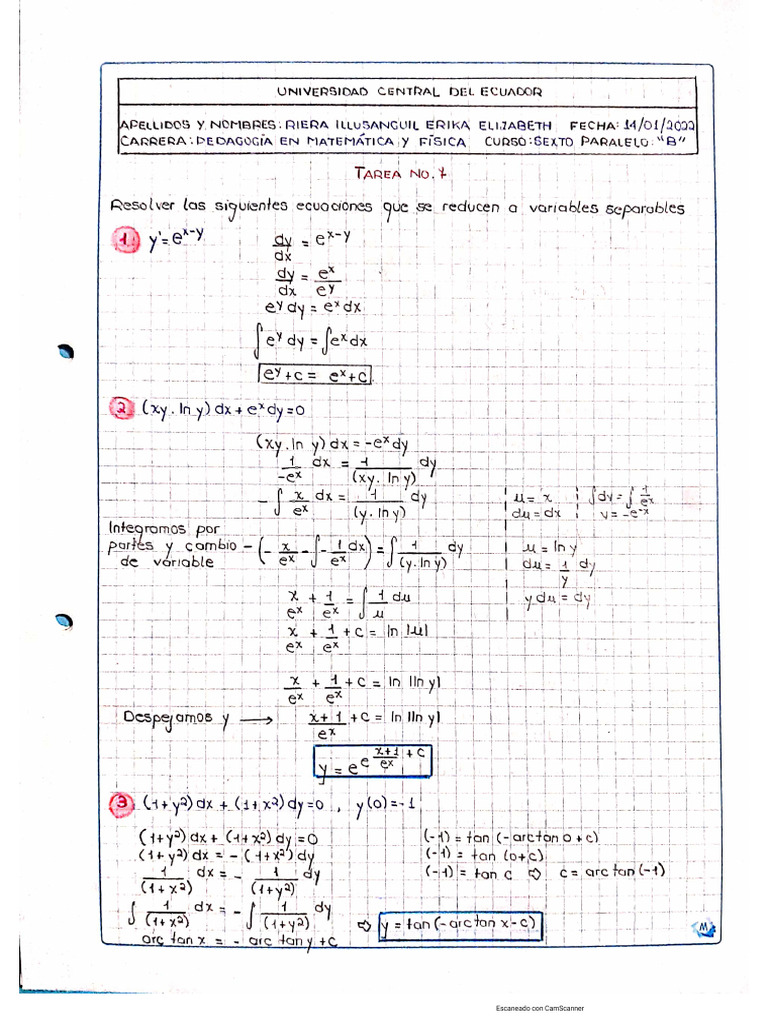 UNIVERSIDAD CENTRAL DEL ECUADOR
APELLIDOS Y NOMBRES: RIERA ILLUSANGUIL ERIKA ELIZABETH FECHA: 14/01/2022
CARRERA: PEDAGOGÍA EN MATEMÁTICA Y FÍSICA CURSO: SEXTO PARALELO: "B"
TAREA NO. 7
Resolver las siguientes ecuaciones que se reducen a variables separables
1. y' = e^(x-y)
dy/dx = e^(x-y)
dy/dx = e^x/e^y
e^y dy = e^x dx
∫e^y dy = ∫e^x dx
e^y + c = e^x + c
2 (xy. ln y) dx + e^x dy = 0
(xy. ln y) dx = -e^x dy
1/(-e^x) dx = 1/(xy. ln y) dy
-∫ x/e^x dx = 1/(y. ln y) dy
u = x ∫dv = ∫1/e^x
du = dx v = -e^-x
Integramos por
partes y cambio
de variable
-(-x/e^x - ∫-1/e^x dx) = ∫1/(y. ln y) dy
u = ln y
du = 1/y dy
y du = dy
x/e^x + 1/e^x = ∫1/u du
x/e^x + 1/e^x + c = ln |u|
x/e^x + 1/e^x + c = ln |ln y|
Despejamos y → (x+1)/e^x + c = ln |ln y|
y = e^(e^((x+1)/e^x + c))
3 (1+y²) dx + (1+x²) dy = 0 , y(0) = -1
(1+y²) dx + (1+x²) dy = 0
(1+y²) dx = -(1+x²) dy
1/(1+x²) dx = - 1/(1+y²) dy
∫ 1/(1+x²) dx = -∫ 1/(1+y²) dy
arc tan x = - arc tan y + c
(-1) = tan (-arctan 0 + c)
(-1) = tan (0+c)
(-1) = tan c ⇨ c = arc tan (-1)
⇨ y = tan(-arctan x - c)
M
Escaneado con CamScanner